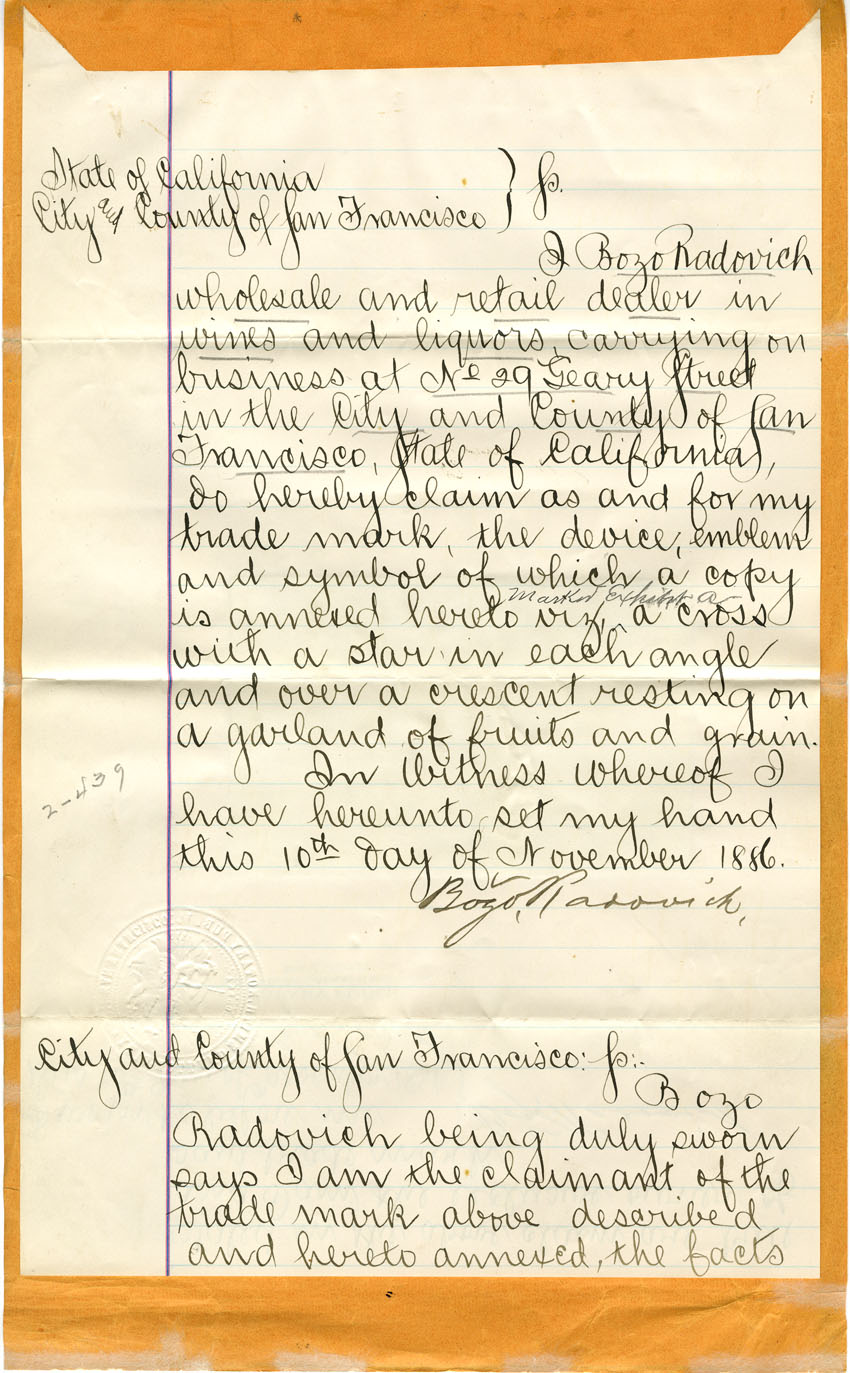 State of California
City and County of San Francisco } ss.
I Bozo Radovich
wholesale and retail dealer in
wines and liquors, carrying on
business at No 29 Geary Street
in the City and County of San
Francisco, State of California,
do hereby claim as and for my
trade mark, the device, emblem
and symbol of which a copy
marked Exhibit A
is annexed hereto viz, a cross
with a star in each angle
and over a crescent resting on
a garland of fruits and grain.
In Witness whereof I
2-439
have hereunto set my hand
this 10th day of November 1886.
Bozo, Radovich,
City and County of San Francisco: ss:-
Bozo
Radovich being duly sworn
says I am the claimant of the
trade mark above described
and hereto annexed, the facts